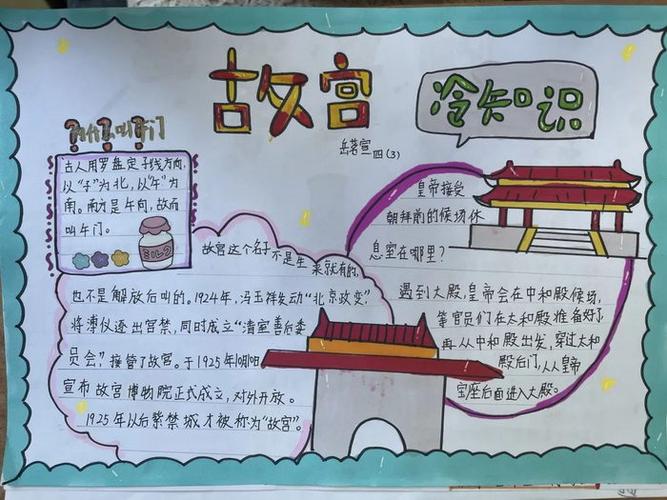 故宫
冷知识
岳茗宣 四(3)
为什么叫午门
古人用罗盘定子线方向,
以“子”为北,以“午”为
南。南方是午向,故而
叫午门。
MILK
故宫这个名字不是生来就有的,
也不是解放后叫的。1924年,冯玉祥发动“北京政变”
将溥仪逐出宫禁,同时成立“清室善后委
员会”,接管了故宫。于1925年10月10日
宣布故宫博物院正式成立,对外开放。
1925年以后紫禁城才被称为“故宫”。
皇帝接受
朝拜前的候场休
息室在哪里?
遇到大殿,皇帝会在中和殿候场,
等官员们在太和殿准备好了,
再从中和殿出发,穿过太和
殿后门,从皇帝
宝座后面进入大殿。